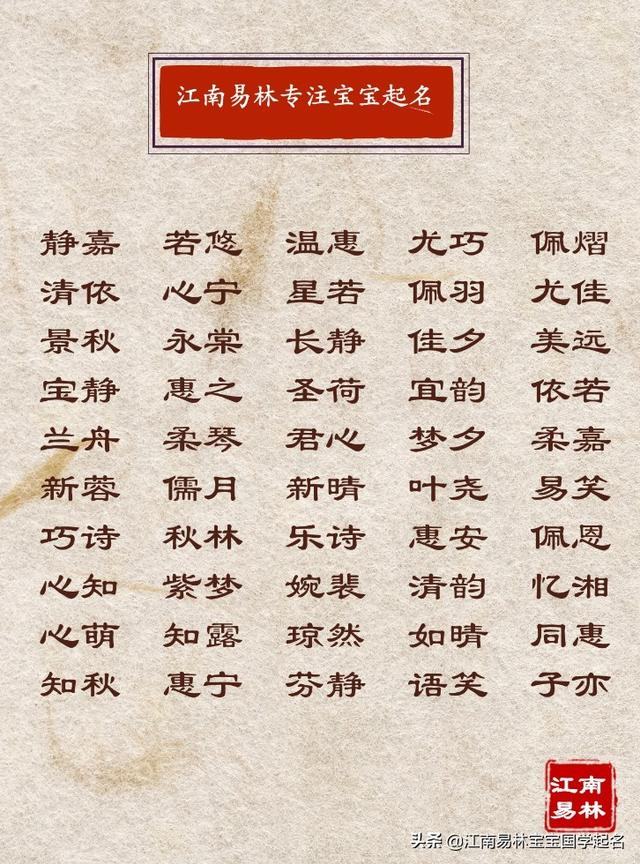 江南易林专注宝宝起名
静嘉 若悠 温惠 尤巧 佩熠
清依 心宁 星若 佩羽 尤佳
景秋 永棠 长静 佳夕 美远
宝静 惠之 圣荷 宜韵 依若
兰舟 柔琴 君心 梦夕 柔嘉
新蓉 儒月 新晴 叶尧 易笑
巧诗 秋林 乐诗 惠安 佩恩
心知 紫梦 婉裴 清韵 忆湘
心萌 知露 琼然 如晴 同惠
知秋 惠宁 芬静 语笑 子亦
江南
易林
头条 @江南易林宝宝国学起名